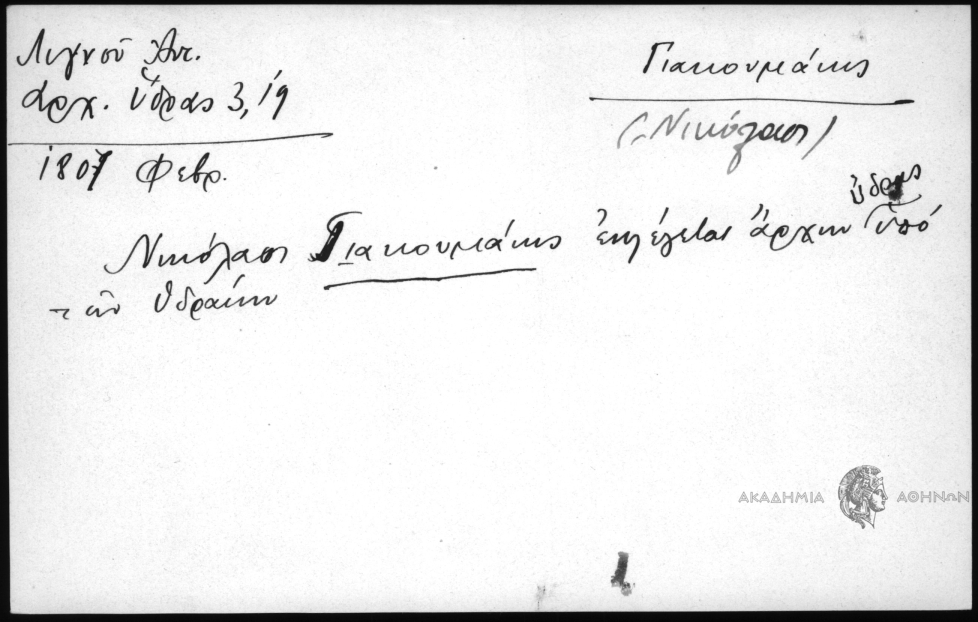 Λιγνοῦ Ἀντ.
Ἀρχ. Ὕδρας 3, 19
1807 Φεβρ.
Γιακουμάκης
(Νικόλαος)
Νικόλαος Γιακουμάκης ἐκλέγεται ἄρχων Ὕδρας ὑπό
τῶν Ὑδραίων
ΑΚΑΔΗΜΙΑ ΑΘΗΝΩΝ